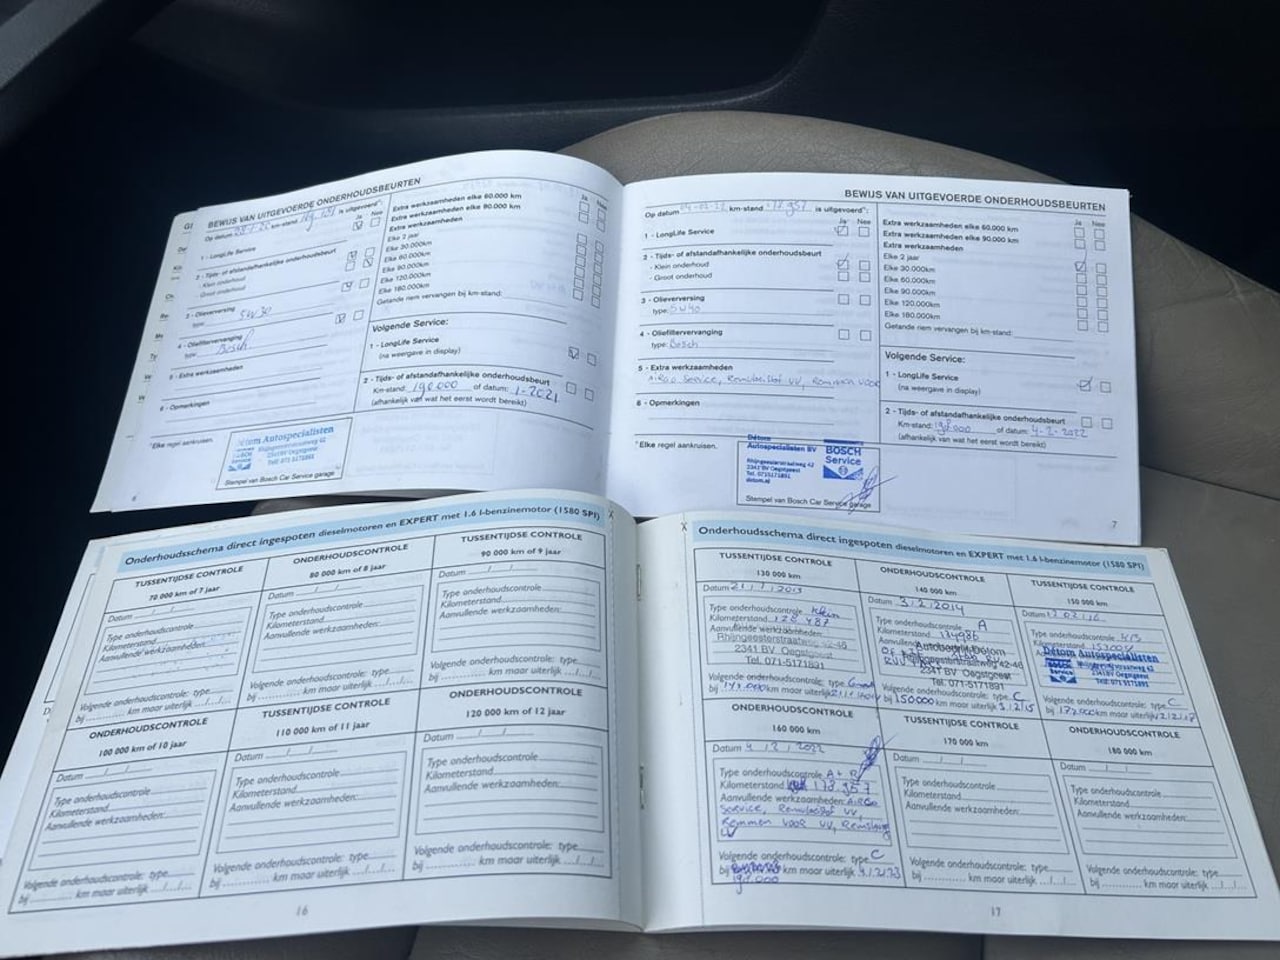 BEWIJS VAN UITGEVOERDE ONDERHOUDSBEURTEN
Op datum km-stand is uitgevoerd*:
Ja Nee
1 - LongLife Service
2 - Tijds- of afstandafhankelijke onderhoudsbeurt
- Klein onderhoud
- Groot onderhoud
3 - Olieverversing
type: 5W30
4 - Oliefiltervervanging
type: Bosch
5 - Extra werkzaamheden
6 - Opmerkingen
*Elke regel aankruisen.
Détom Autospecialisten
Rhijngeesterstraatweg 42
2341BV Oegstgeest
Tel: 071-5171891
Stempel van Bosch Car Service garage
6
Extra werkzaamheden elke 60.000 km
Extra werkzaamheden elke 90.000 km
Extra werkzaamheden
Ja Nee
Elke 2 jaar
Elke 30.000km
Elke 60.000km
Elke 90.000km
Elke 120.000km
Elke 180.000km
Getande riem vervangen bij km-stand:
Volgende Service:
1 - LongLife Service
(na weergave in display)
2 - Tijds- of afstandafhankelijke onderhoudsbeurt
Km-stand: 190.000 of datum: 1-2021
(afhankelijk van wat het eerst wordt bereikt)
BEWIJS VAN UITGEVOERDE ONDERHOUDSBEURTEN
Op datum km-stand is uitgevoerd*:
Ja Nee
1 - LongLife Service
2 - Tijds- of afstandafhankelijke onderhoudsbeurt
- Klein onderhoud
- Groot onderhoud
3 - Olieverversing
type: 5W40
4 - Oliefiltervervanging
type: Bosch
5 - Extra werkzaamheden
Airco Service, Remvloeistof VV, Remmen voor
6 - Opmerkingen
*Elke regel aankruisen.
Détom
Autospecialisten BV
Rhijngeesterstraatweg 42
2341 BV Oegstgeest
Tel. 0715171891
détom.nl
BOSCH
Service
Stempel van Bosch Car Service garage
Extra werkzaamheden elke 60.000 km
Extra werkzaamheden elke 90.000 km
Extra werkzaamheden
Ja Nee
Elke 2 jaar
Elke 30.000km
Elke 60.000km
Elke 90.000km
Elke 120.000km
Elke 180.000km
Getande riem vervangen bij km-stand:
Volgende Service:
1 - LongLife Service
(na weergave in display)
2 - Tijds- of afstandafhankelijke onderhoudsbeurt
Km-stand: of datum: 4-2-2022
(afhankelijk van wat het eerst wordt bereikt)
7
Onderhoudsschema direct ingespoten dieselmotoren en EXPERT met 1.6 l-benzinemotor (1580 SPI)
TUSSENTIJDSE CONTROLE
70 000 km of 7 jaar
Datum
Type onderhoudscontrole
Kilometerstand
Aanvullende werkzaamheden:
Volgende onderhoudscontrole: type
bij km maar uiterlijk
ONDERHOUDSCONTROLE
80 000 km of 8 jaar
Datum
Type onderhoudscontrole
Kilometerstand
Aanvullende werkzaamheden:
Volgende onderhoudscontrole: type
bij km maar uiterlijk
TUSSENTIJDSE CONTROLE
90 000 km of 9 jaar
Datum
Type onderhoudscontrole
Kilometerstand
Aanvullende werkzaamheden:
Volgende onderhoudscontrole: type
bij km maar uiterlijk
ONDERHOUDSCONTROLE
100 000 km of 10 jaar
Datum
Type onderhoudscontrole
Kilometerstand
Aanvullende werkzaamheden:
Volgende onderhoudscontrole: type
bij km maar uiterlijk
TUSSENTIJDSE CONTROLE
110 000 km of 11 jaar
Datum
Type onderhoudscontrole
Kilometerstand
Aanvullende werkzaamheden:
Volgende onderhoudscontrole: type
bij km maar uiterlijk
ONDERHOUDSCONTROLE
120 000 km of 12 jaar
Datum
Type onderhoudscontrole
Kilometerstand
Aanvullende werkzaamheden:
Volgende onderhoudscontrole: type
bij km maar uiterlijk
16
Onderhoudsschema direct ingespoten dieselmotoren en EXPERT met 1.6 l-benzinemotor (1580 SPI)
TUSSENTIJDSE CONTROLE
130 000 km
Datum
Type onderhoudscontrole Klein
Kilometerstand
Aanvullende werkzaamheden:
Rhijngeesterstraatweg 42-48
2341 BV Oegstgeest
Tel. 071-5171891
Volgende onderhoudscontrole: type
bij km maar uiterlijk
ONDERHOUDSCONTROLE
140 000 km
Datum 3.2.2014
Type onderhoudscontrole A
Kilometerstand 134986
Autobedrijf Détom
Rhijngeesterstraatweg 42-48
2341 BV Oegstgeest
Tel. 071-5171891
Volgende onderhoudscontrole: type C
bij 150000 km maar uiterlijk 3.2.15
TUSSENTIJDSE CONTROLE
150 000 km
Datum
Type onderhoudscontrole
Kilometerstand
Détom Autospecialisten
Rhijngeesterstraatweg 42
2341BV Oegstgeest
Tel: 071-5171891
Volgende onderhoudscontrole: type C
bij km maar uiterlijk
ONDERHOUDSCONTROLE
160 000 km
Datum 4.2.2022
Type onderhoudscontrole A+
Kilometerstand 178.957
Aanvullende werkzaamheden: Airco
Service, Remvloeistof VV,
Remmen voor VV,
Volgende onderhoudscontrole: type C
bij km maar uiterlijk
TUSSENTIJDSE CONTROLE
170 000 km
Datum
Type onderhoudscontrole
Kilometerstand
Aanvullende werkzaamheden:
Volgende onderhoudscontrole: type
bij km maar uiterlijk
ONDERHOUDSCONTROLE
180 000 km
Datum
Type onderhoudscontrole
Kilometerstand
Aanvullende werkzaamheden:
Volgende onderhoudscontrole: type
bij km maar uiterlijk
17